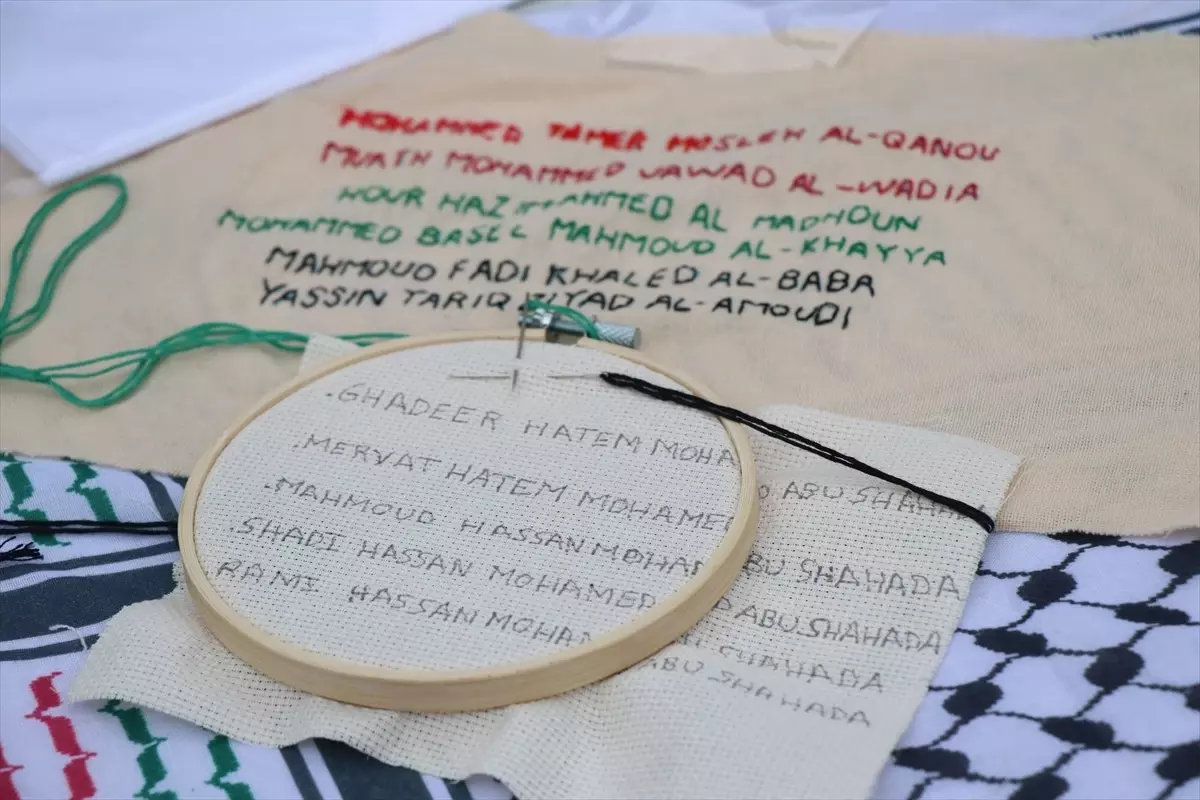 MOHAMMED TAMER MOSLEH AL-QANOU
MUATH MOHAMMED JAWAD AL-WADIA
HOUR HAZ AHMED AL MADHOUN
MOHAMMED BASEL MAHMOUD AL-KHAYYA
MAHMOUD FADI KHALED AL-BABA
YASSIN TARIQ ZIYAD AL-AMOUDI
.GHADEER HATEM MOHA D ABU SHAHADA
.MERVAT HATEM MOHAMED ABU SHAHADA
.MAHMOUD HASSAN MOHAM D ABU SHAHADA
.SHADI HASSAN MOHAMED SHAHADA
RAMI HASSAN MOHAM ABU SHAHADA